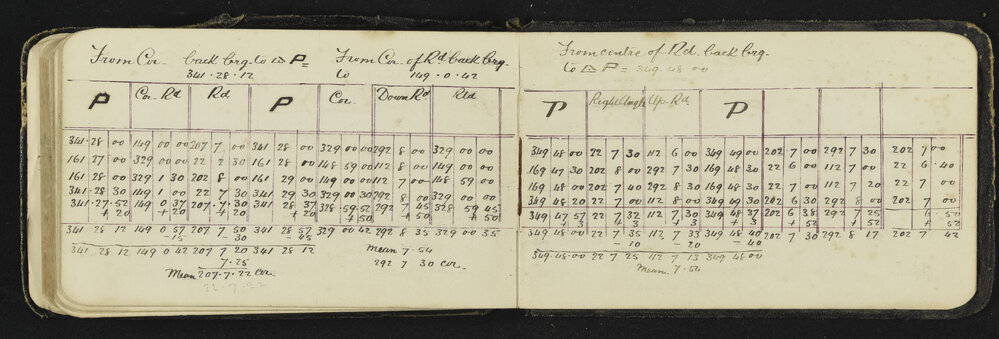 From Cor. back brg. to △ P = From Cor. of Rd. back Brg.
341·28·12 to 149·0·42
P Cor. Rd Rd. P Cor. Down Rd Rd
341·28 00 149 00 00 207 7 00 341 28 00 329 00 00 292 8 00 329 00 00
161 27 00 329 00 00 22 2 30 161 28 00 148 59 00 112 8 00 149 00 00
161 28 00 329 1 30 202 8 00 161 29 00 149 00 00 112 7 00 148 59 00
341·28 30 149 1 00 22 7 30 341 29 30 329 00 30 292 8 00 329 00 00
341·27·52 149 0 37 207·7·30 341 28 37 328·59·52 292 7 45 328 59 45
+ 20 + 20 + 20 + 20 + 50 + 50 + 50
341 28 12 149 0 57 207 7 50 341 28 57 329 00 42 292 8 35 329 00 35
- 15 - 30 - 45
341 28 12 149 0 42 207 7 20 341 28 12 Mean 7·54
7·25 292 7 30 Cor.
Mean 207·7·22 Cor
22·7·22
From centre of Rd. back Brg.
to △ P = 349·48·00
P Right Angle Up. Rd. P
349 48 00 22 7 30 112 6 00 349 49 00 202 7 00 292 7 30 202 7 00
169 47 30 202 8 00 292 7 30 169 48 30 22 6 00 112 7 00 22 6·40
169 48 00 202 7 40 292 8 30 169 48 30 22 7 00 112 7 20 22 7 00
349 48 20 22 7 00 112 7 00 349 48 30 202 6 30 292 8 00 202 7 00
349 47 57 22 7 32 112 7 30 349 48 37 202 6 38 292 7 25 6 50
+ 3 + 3 + 3 + 3 + 52 + 52 + 52
349 48 00 22 7 35 112 7 33 349 48 40 202 7 30 292 8 17 202 7 42
- 10 - 20 - 40
349·48·00 22 7 25 112 7 13 349 48 00
Mean. 7·54